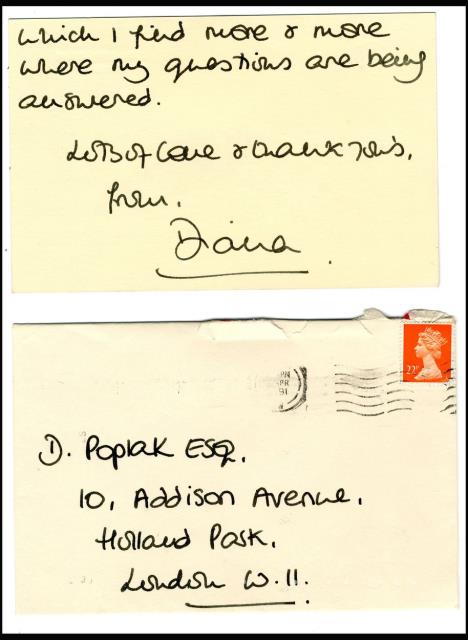 which I find more & more
where my questions are being
answered.
Lots of love & thank you's,
from,
Diana
22P
PM
PR
91
D. Poplak ESQ,
10, Addison Avenue,
Holland Park,
London W.11.